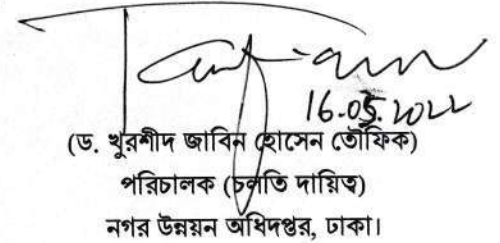 16.05.2022
(ড. খুরশীদ জাবিন হোসেন তৌফিক)
পরিচালক (চলতি দায়িত্ব)
নগর উন্নয়ন অধিদপ্তর, ঢাকা।